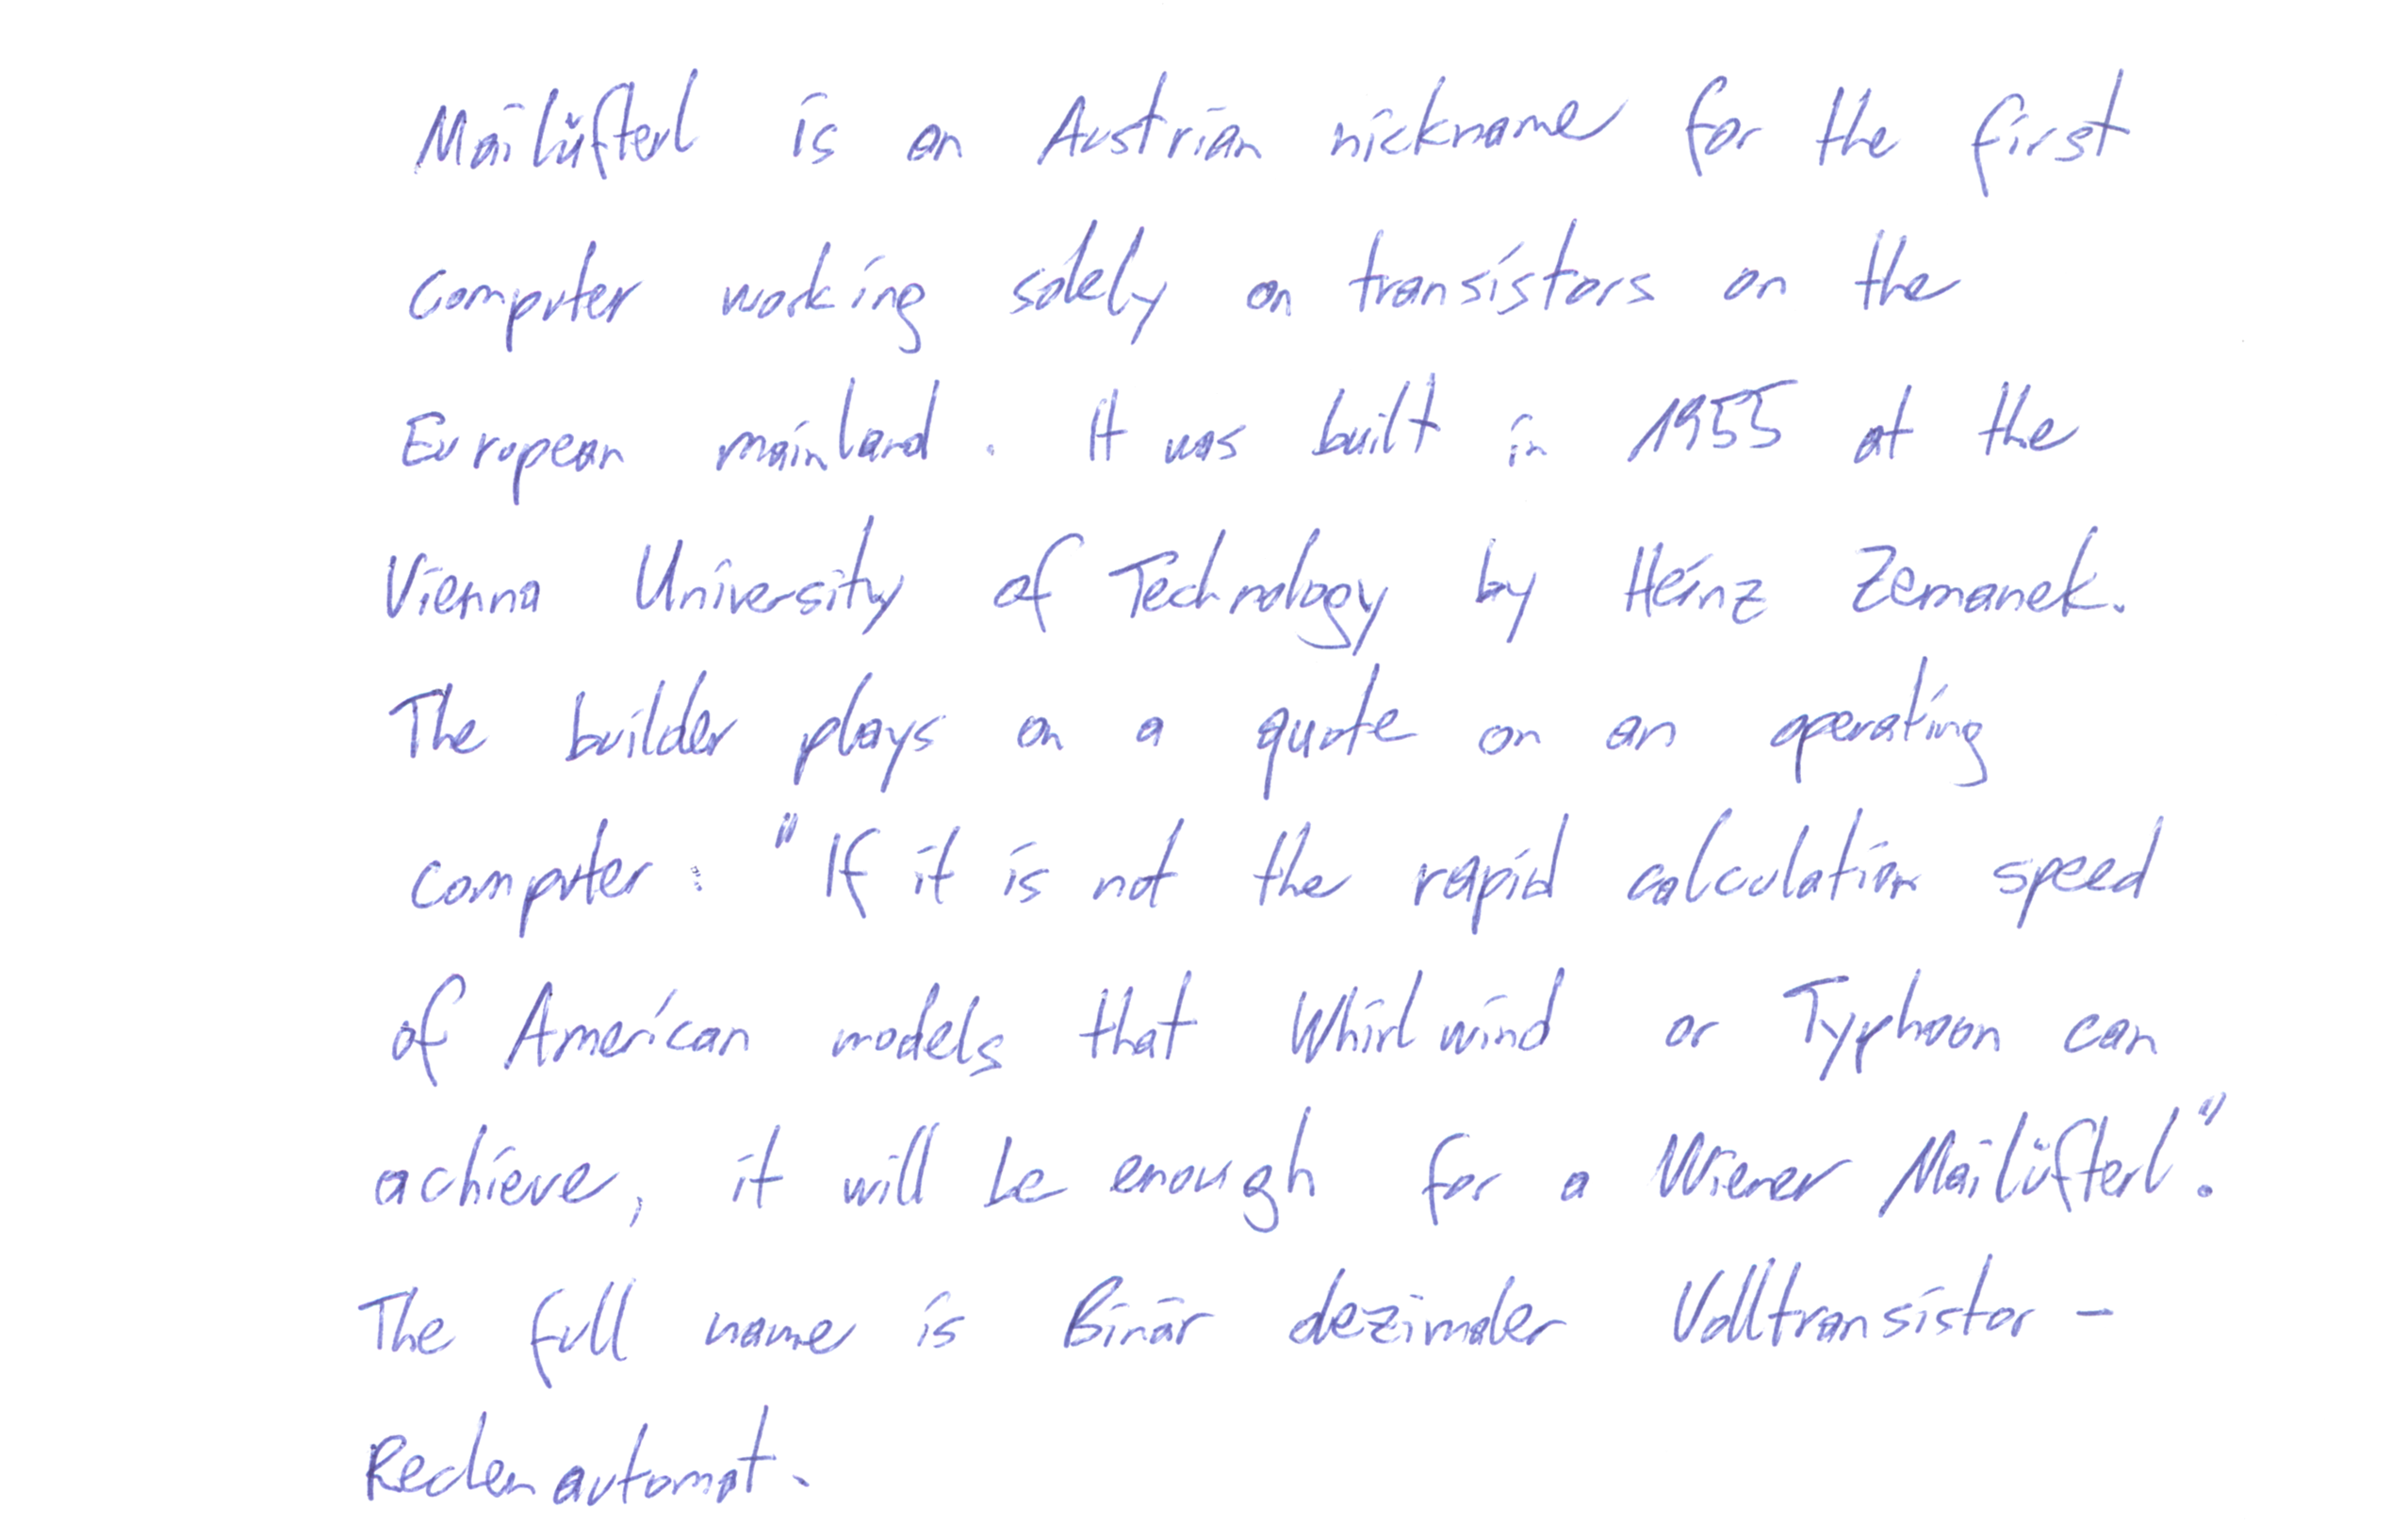 Mailüfterl is an Austrian nickname for the first
computer working solely on transistors on the
European mainland. It was built in 1955 at the
Vienna University of Technology by Heinz Zemanek.
The builder plays on a quote on an operating
computer: "If it is not the rapid calculation speed
of American models that Whirlwind or Typhoon can
achieve, it will be enough for a Wiener Mailüfterl".
The full name is Binär dezimaler Volltransistor-
Rechenautomat.